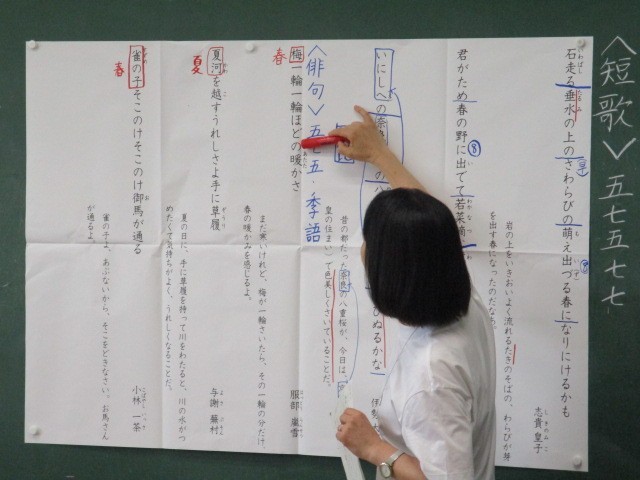 〈短歌〉五七五七七
石走る垂水の上のさわらびの萌え出づる春になりにけるかも
志貴皇子
岩の上をいきおいよく流れるたきのそばの、わらびが芽
を出す春になったのだなあ。
君がため春の野に出でて若菜摘
いにしへの
ひぬるかな
昔の都だった奈良の八重桜が、今日は、
皇の住まい)で色美しくさいていることだ。
〈俳句〉五七五・季語
梅一輪一輪ほどの暖かさ
春
服部 嵐雪
まだ寒いけれど、梅が一輪さいたら、その一輪の分だけ
春の暖かみを感じるよ。
夏河を越すうれしさよ手に草履
夏
与謝 蕪村
夏の日に、手に草履を持って川をわたると、川の水がつ
めたくて気持ちがよく、うれしくなることだ。
雀の子そこのけそこのけ御馬が通る
春
小林 一茶
雀の子よ、あぶないから、そこをどきなさい。お馬さん
が通るよ。